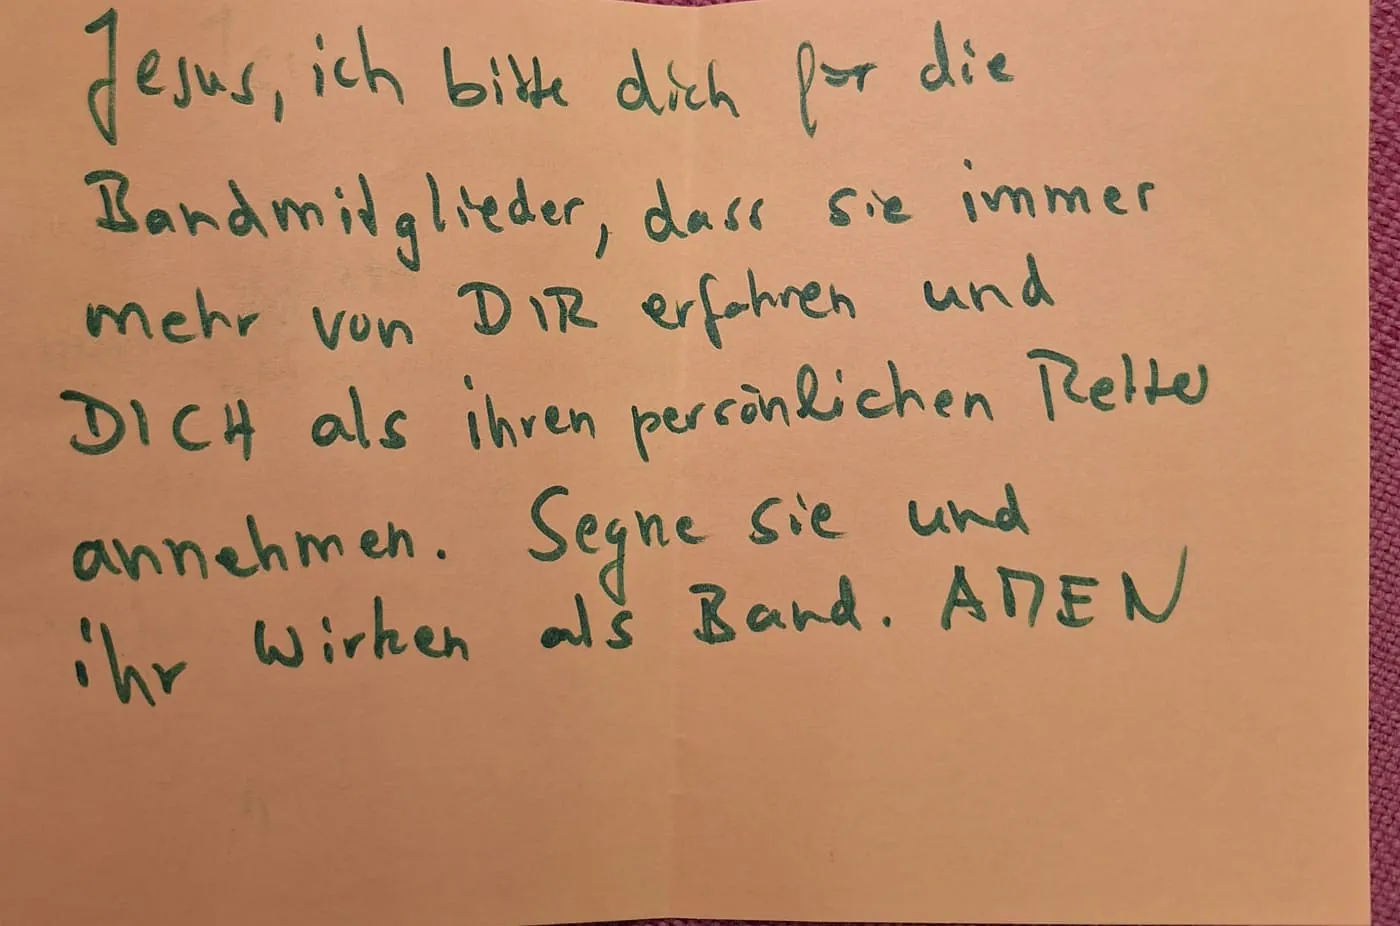 Jesus, ich bitte dich für die
Bandmitglieder, dass sie immer
mehr von DIR erfahren und
DICH als ihren persönlichen Retter
annehmen. Segne sie und
ihr Wirken als Band. AMEN